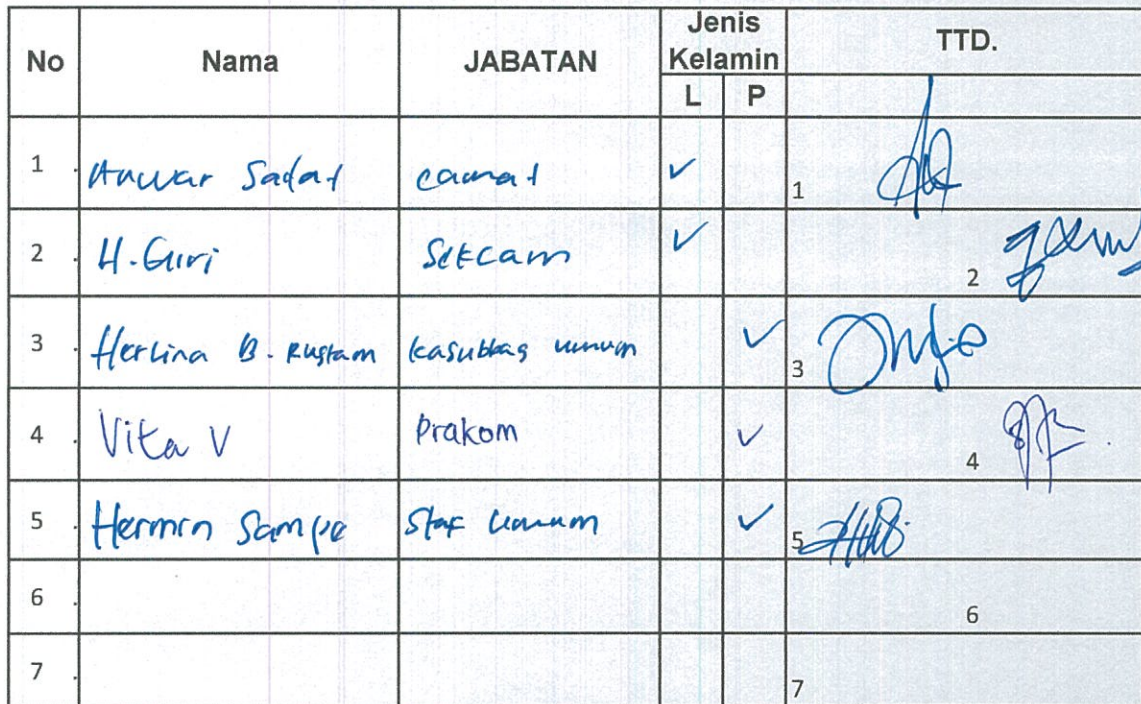 No Nama JABATAN Jenis Kelamin TTD.
L P
1 . Anwar Sadat camat ✓ 1
2 . H. Guri Sekcam ✓ 2
3 . Herlina B. Rustam kasubbag umum ✓ 3
4 . Vita V Prakom ✓ 4
5 . Hermin Sampe Staf Umum ✓ 5
6 . 6
7 . 7